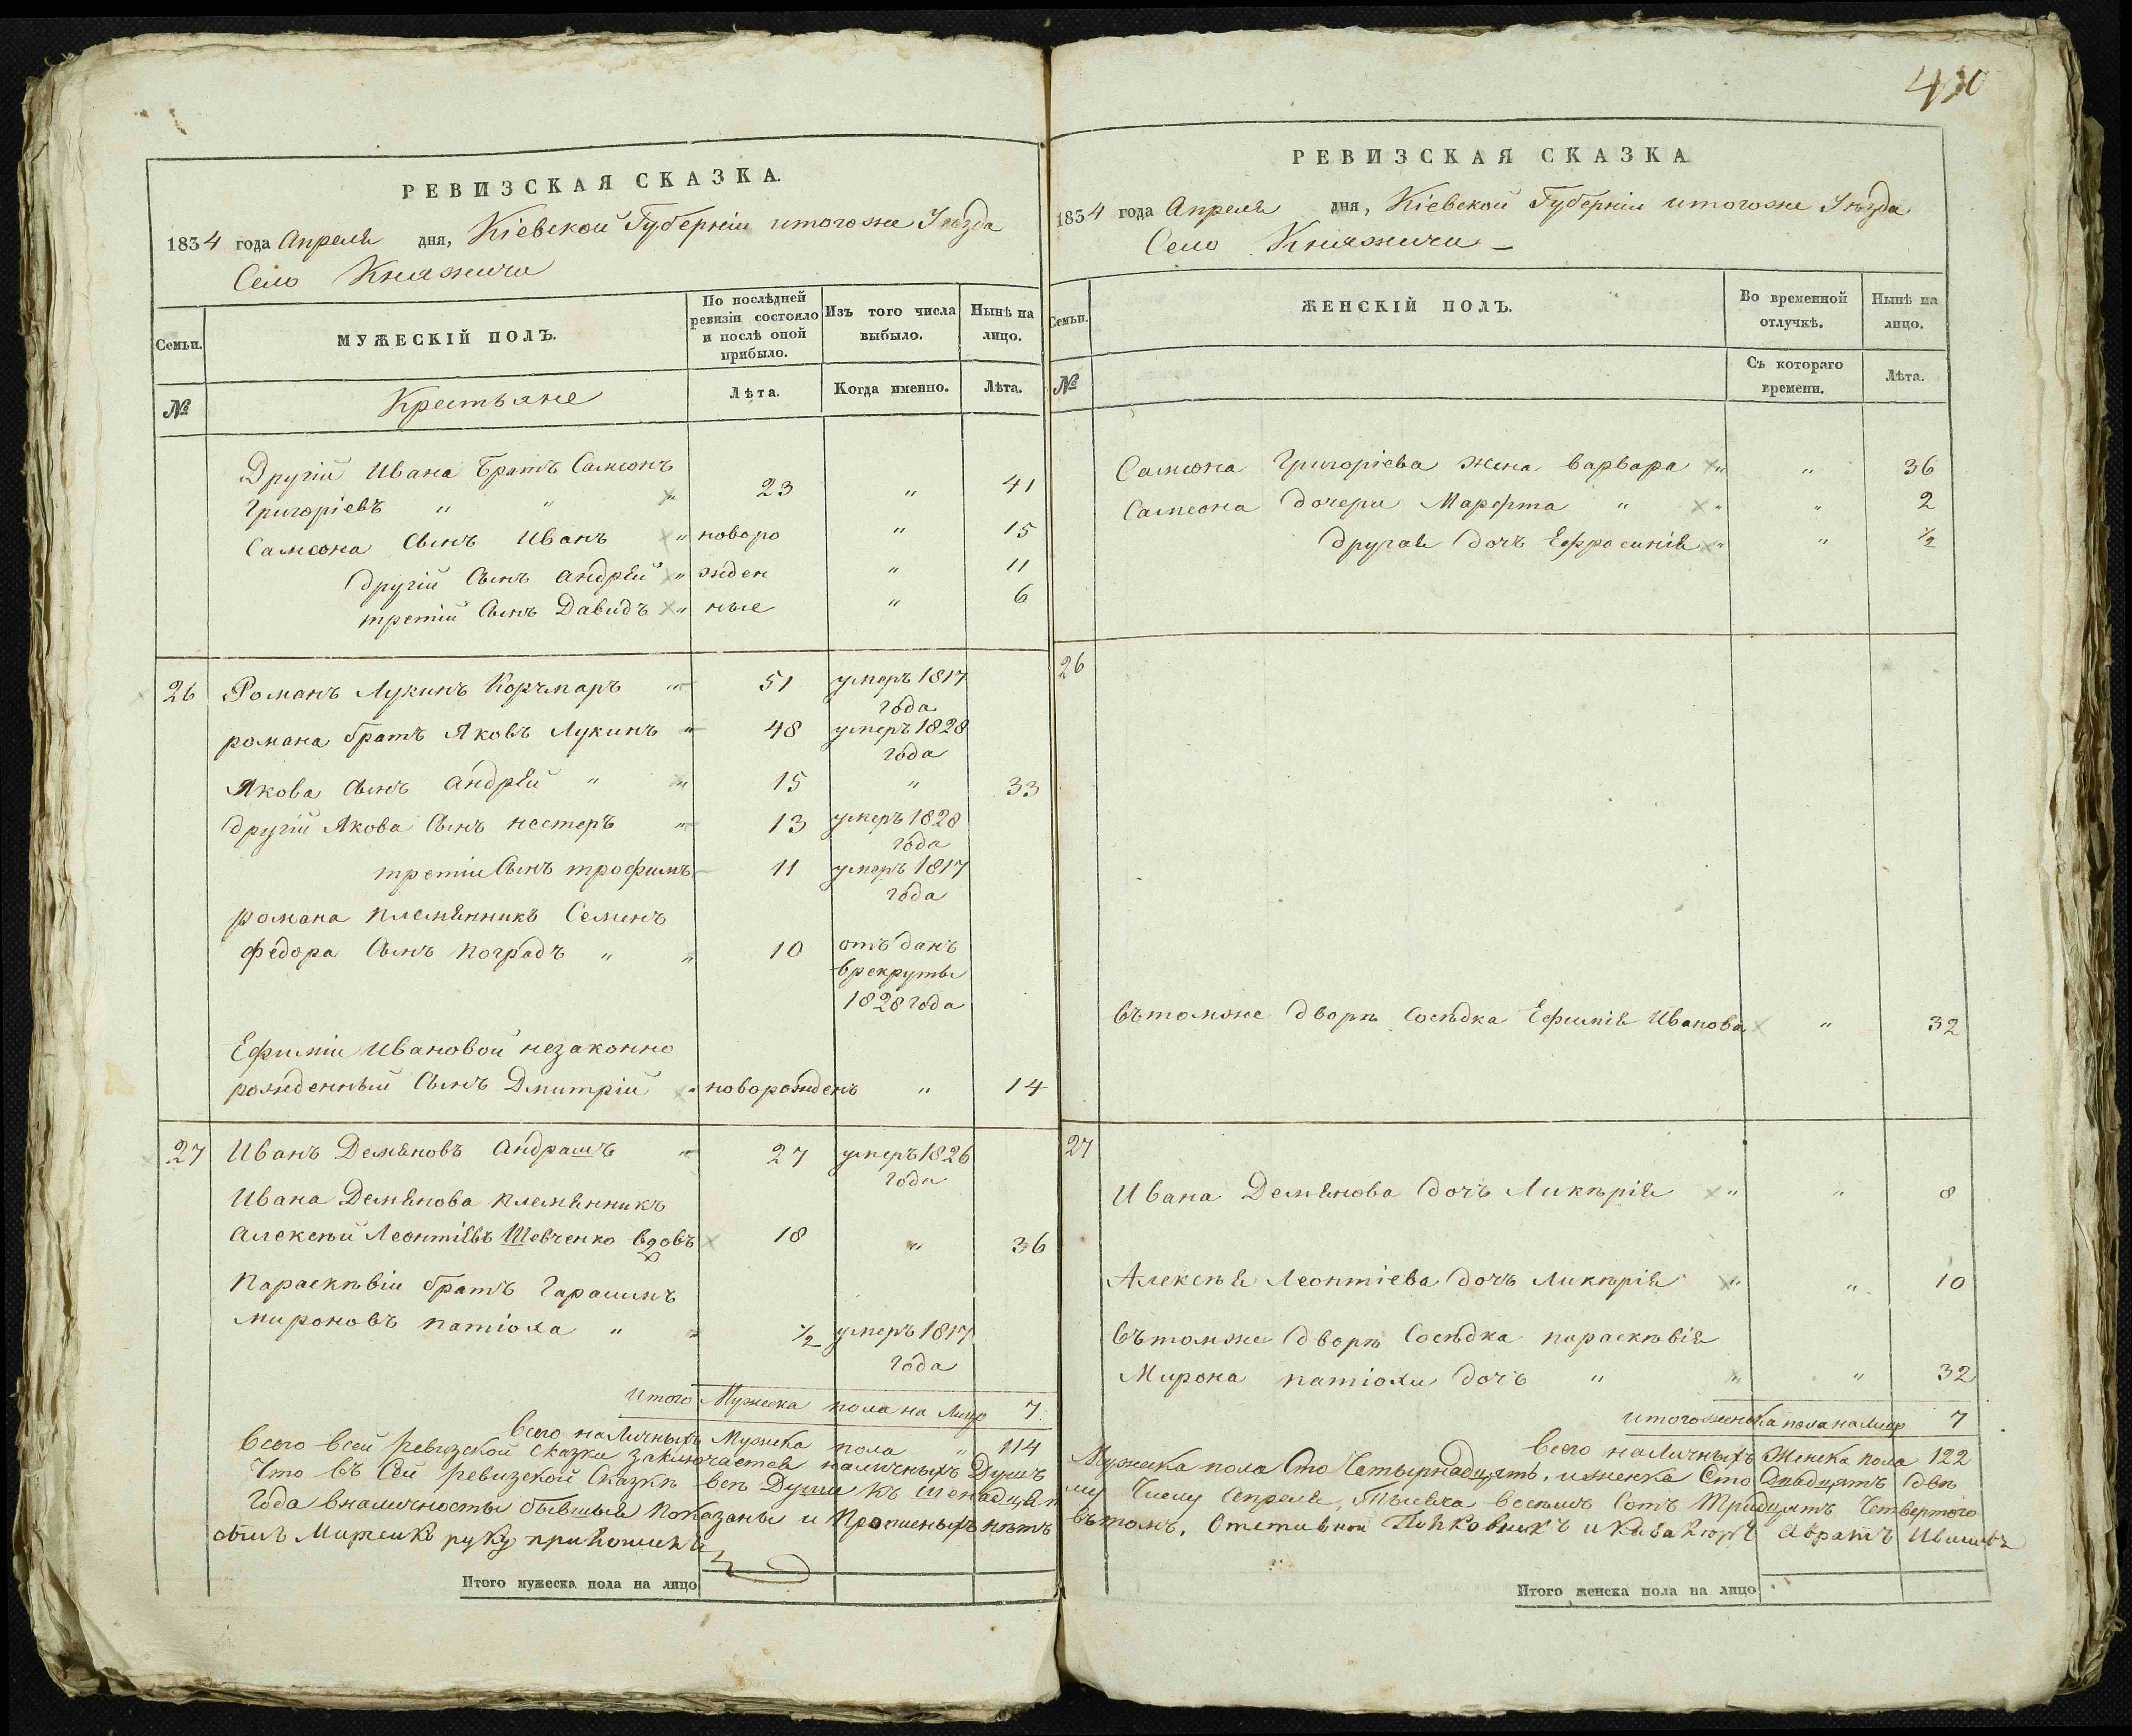 430
РЕВИЗСКАЯ СКАЗКА.
1834 года Апреля дня, Кіевской Губерніи итогоже Уѣзда
Село Княжичи
Семьи.
МУЖЕСКІЙ ПОЛЪ.
По послѣдней ревизіи состояло и послѣ оной прибыло.
Изъ того числа выбыло.
Нынѣ на лицо.
№
Крестьяне
Лѣта.
Когда именно.
Лѣта.
Другій Ивана Братъ Самсонъ
Григоріевъ " " " 23 " 41
Самсона Сынъ Иванъ " новоро " 15
другій Сынъ андрѣй " жден " 11
третій Сынъ Давидъ " ные " 6
26 Романъ Лукинъ " 51 умеръ 1817
года
романа братъ Яковъ Лукинъ " 48 умеръ 1828
года
Якова Сынъ андрѣй " " 15 " 33
другій Якова Сынъ нестеръ " 13 умеръ 1828
года
третій Сынъ трофимъ 11 умеръ 1817
года
романа племянникъ Семенъ
федора Сынъ " " 10 отъ данъ
врекруты
1828 года
Ефиміи Ивановой незаконно
рожденный Сынъ Дмитрій " новорожденъ " 14
27 Иванъ Демяновъ андрашъ " 27 умеръ 1826
года
Ивана Демянова племянникъ
алексѣй Леонтіевъ Шевченко вдовъ 18 " 36
Параскѣвіи братъ Гарасимъ
Мироновъ патіоха " " 1/2 умеръ 1817
года
итого Мужеска пола на Лицо 7
всего наЛичныхъ Мужеска пола " 114
всего всей ревизской сказки заключается наличныхъ Душъ
Что въ Сей ревизской Сказкѣ всѣ Души къ
Года вналичносты бывшыя показаны и Прописныхъ нѣтъ
руку
Итого мужеска пола на лицо
РЕВИЗСКАЯ СКАЗКА
1834 года Апреля дня, Кіевской Губерніи итогоже Уѣзда
Село Княжичи
Семьи.
ЖЕНСКІЙ ПОЛЪ.
Во временной отлучкѣ.
Нынѣ на лицо.
№
Съ котораго времени.
Лѣта.
Самсона Григоріева жена варвара " " 36
Самсона дочери Марфта " " " 2
другая дочъ Ефросинія " " 1/2
26
вътомже дворѣ Сосѣдка Ефимія Иванова " 32
27
Ивана Демянова дочъ Ликѣрія " " 8
Алексѣя Леонтіева дочъ Ликѣрія " " 10
вътомже дворѣ Сосѣдка параскѣвія
Мирона патіохи дочъ " " " 32
итого женска пола наЛицо 7
всего наЛичныхъ Женска пола 122
Мужеска пола Сто Четырнадцять, иженска Сто Двадцять двѣ
му Числу апреля, Тысяча восѣмъ Сотъ Тридцять Четвертого
вътомъ, и
Итого женска пола на лицо